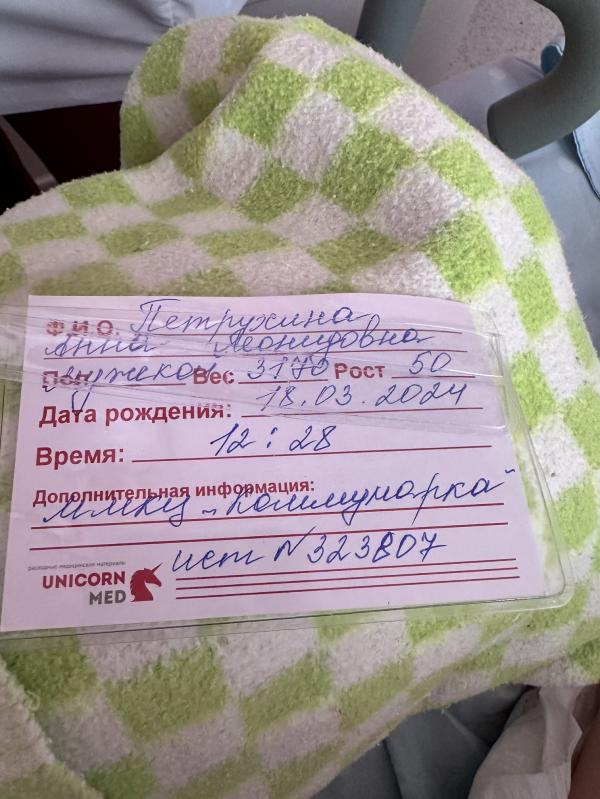 Ф.И.О. Петрухина
Анна Леонидовна
Пол мужской Вес 3170 Рост 50
Дата рождения: 18.03.2024
Время: 12:28
Дополнительная информация:
ММКЦ „Коммунарка"
ист N 323807
расходные медицинские материалы
UNICORN
MED